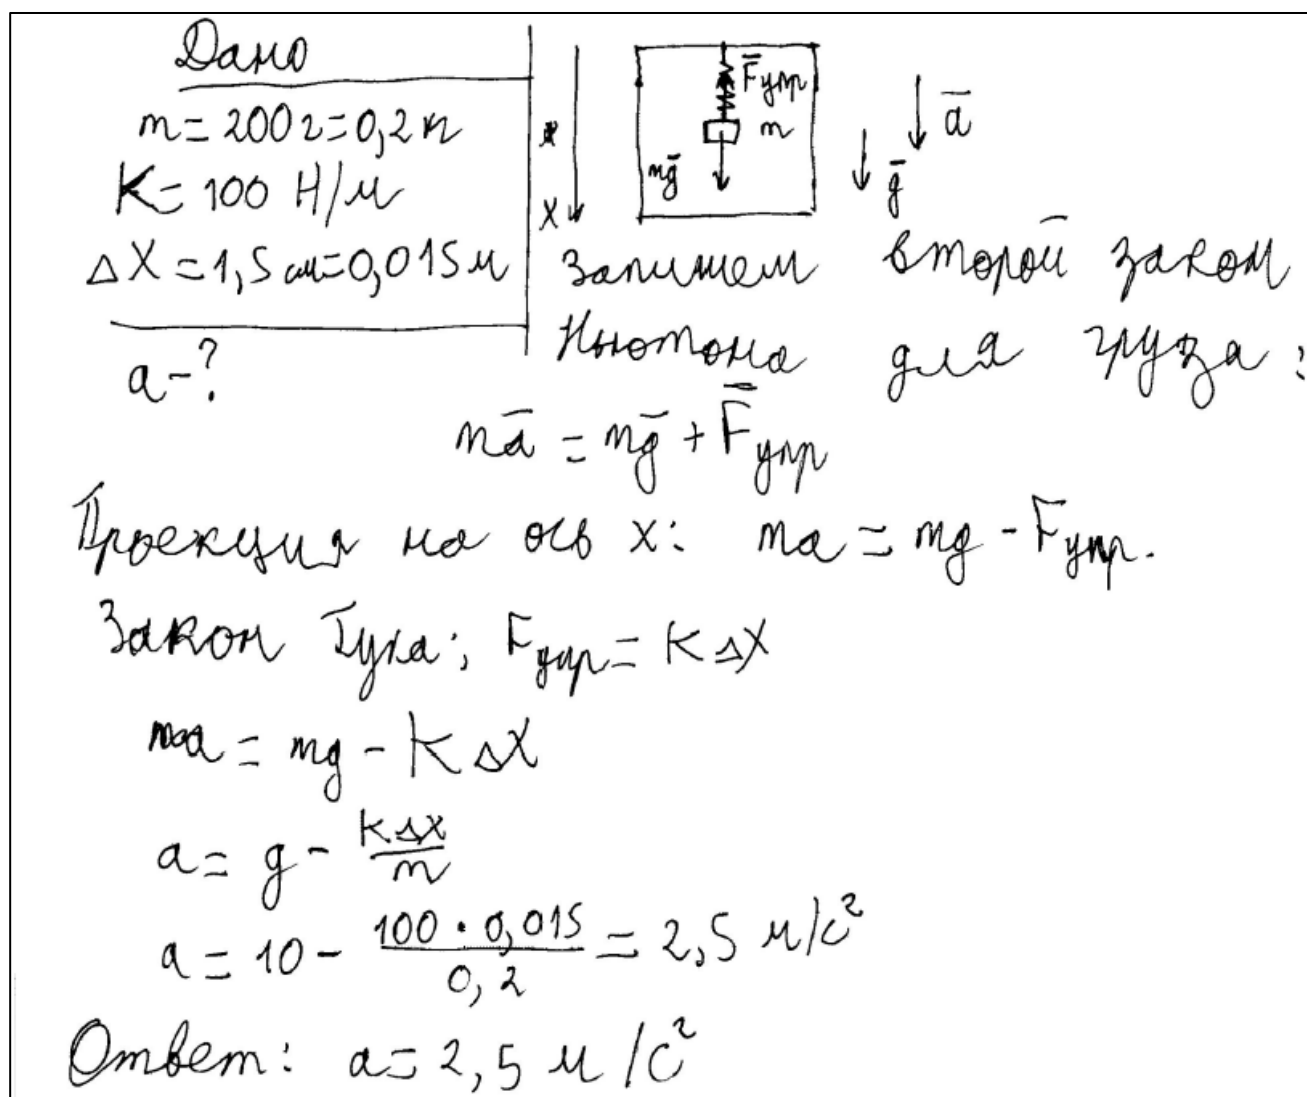 Дано
m = 200 г = 0,2 кг
K = 100 Н/м
ΔX = 1,5 см = 0,015 м
a - ?
F̄упр
m
mḡ
X
ā
ḡ
Запишем второй закон
Ньютона для груза:
mā = mḡ + F̄упр
Проекция на ось x: ma = mg - Fупр.
Закон Гука: Fупр = KΔX
ma = mg - KΔX
a = g - KΔX/m
a = 10 - 100 · 0,015/0,2 = 2,5 м/с²
Ответ: a = 2,5 м/с²